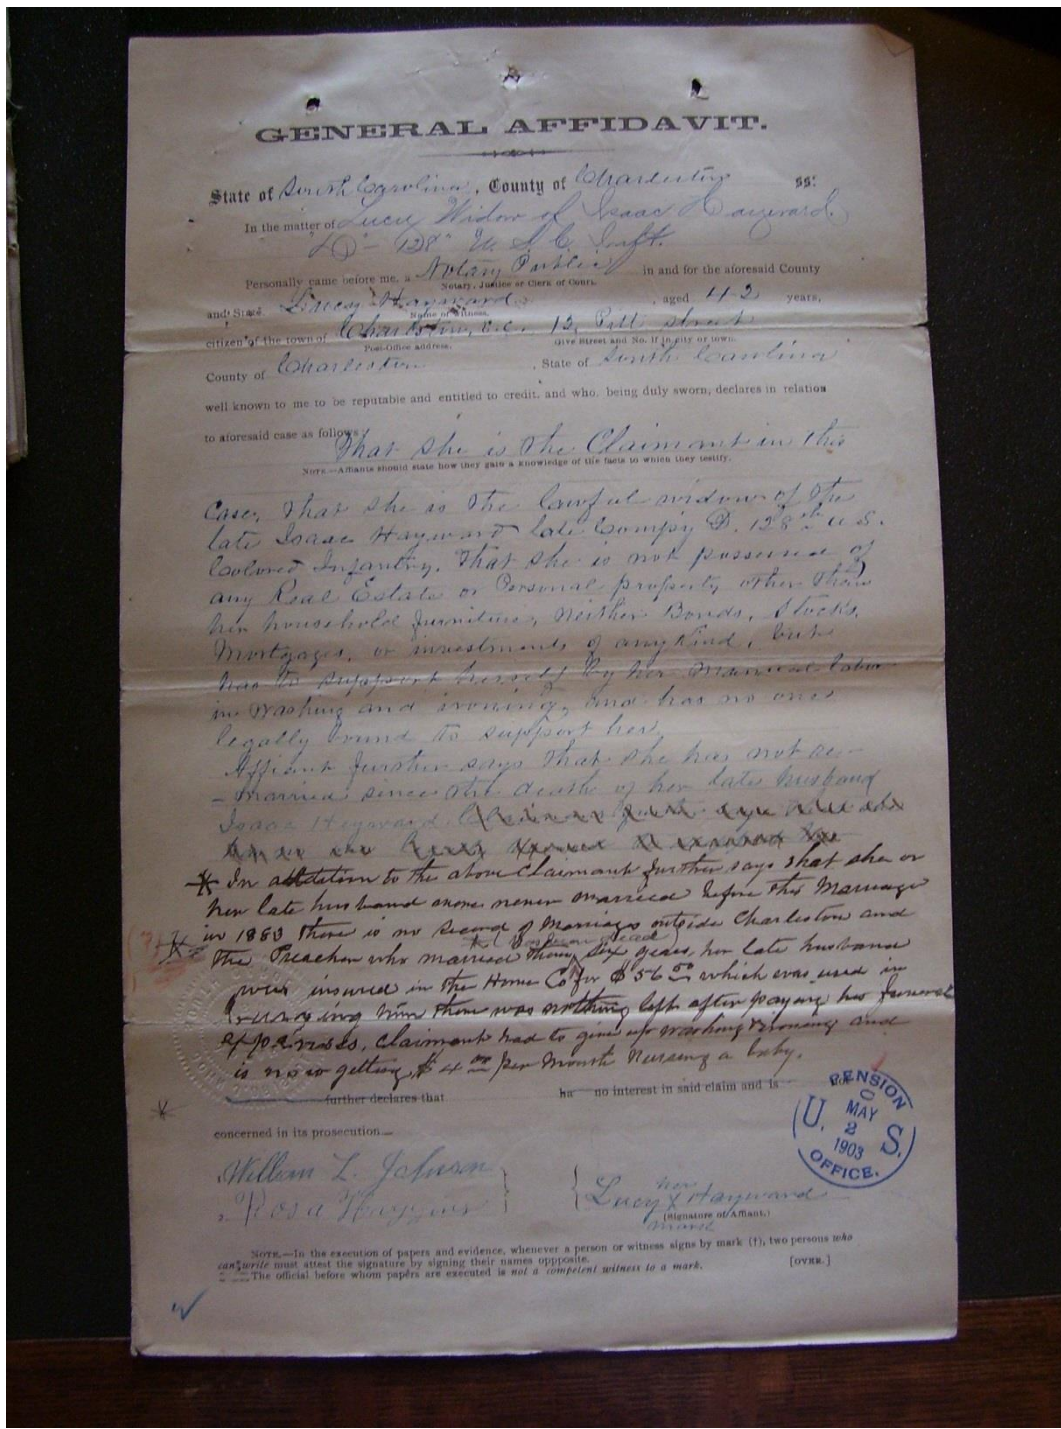 GENERAL AFFIDAVIT.
State of South Carolina, County of Charleston ss:
In the matter of Lucy Widow of Isaac Hayward
"D" 128" U.S.C. Inft.
Personally came before me, a Notary Public in and for the aforesaid County
Notary, Justice or Clerk of Court.
and State Lucy Hayward, aged 42 years,
Name of Witness.
citizen of the town of Charleston, S.C. 12, Pitt street
Post-Office address. Give Street and No. if in city or town.
County of Charleston, State of South Carolina
well known to me to be reputable and entitled to credit, and who, being duly sworn, declares in relation
to aforesaid case as follows: That she is the Claimant in this
NOTE.—Affiants should state how they gain a knowledge of the facts to which they testify.
Case, That she is the lawful widow of the
late Isaac Hayward late Compy D. 128th U.S.
Colored Infantry. That she is not possessed of
any Real Estate or Personal property other than
her household furniture, neither Bonds, Stocks,
Mortgages, or investments of any Kind, but
has to support herself by her manual labor
in Washing and ironing, and has no one
legally bound to support her.
Affiant further says that she has not re-
-married since the death of her late husband
Isaac Heyward
* In addition to the above Claimant further says that she or
her late husband were never married before this Marriage
in 1883 there is no record of Marriages outside Charleston and
* has been dead
the Preacher who married them six years, her late husband
was insured in the Home Co for $56 which was used in
burying him there was nothing left after paying his funeral
expenses, claimant had to give up washing & ironing and
is now getting $4 00 per Month Nursing a baby.
further declares that ha no interest in said claim and is not
concerned in its prosecution.
William L. Johnson
Rosa Huggins
Lucy her X mark Hayward
(Signature of Affiant.)
PENSION OFFICE.
U. S.
MAY
2
1903
NOTE.—In the execution of papers and evidence, whenever a person or witness signs by mark (†), two persons who
can write must attest the signature by signing their names oppposite.
The official before whom papers are executed is not a competent witness to a mark. [OVER.]